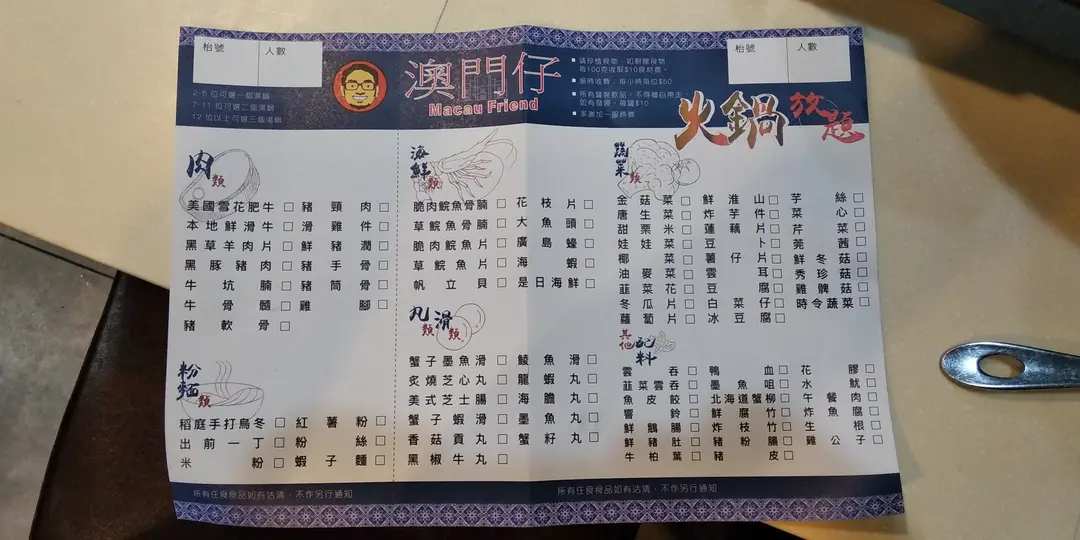 枱號 人數
2-6 位可選一個湯鍋
7-11 位可選二個湯鍋
12 位以上可選三個湯鍋
澳門仔
Macau Friend
請珍惜食物，如剩餘食物
每100克收取$10食材費。
逾時收費：每小時每位$50
所有罐裝飲品，不得擅自帶走
如有發現，每罐$10
多謝加一服務費
枱號 人數
火鍋放題
肉類
美國雪花肥牛 豬頸肉
本地鮮滑牛 滑雞件
黑草羊肉片 鮮豬膶
黑豚豬肉 豬手骨
牛坑腩 豬筒骨
牛骨髓 雞腳
豬軟骨
粉麵類
稻庭手打烏冬 紅薯粉
出前一丁 粉絲
米粉 蝦子麵
海鮮類
脆肉鯇魚骨腩 花枝片
草鯇魚骨腩 大魚頭
脆肉鯇魚片 廣島蠔
草鯇魚片 海蝦
帆立貝 是日海鮮
丸類滑類
蟹子墨魚滑 鯪魚滑
炙燒芝心丸 龍蝦丸
美式芝士腸 海膽丸
蟹子蝦滑 墨魚丸
香菇貢丸 蟹籽丸
黑椒牛丸
蔬菜類
金菇菜 鮮淮山 芋絲
唐生菜 炸芋件 菜心
甜粟米 蓮藕片 芹菜
娃娃菜 豆卜 芫茜
椰菜 薯仔片 鮮冬菇
油麥菜 雲耳 秀珍菇
韮菜花 豆腐 雞髀菇
冬瓜片 白菜仔 時令蔬菜
蘿蔔片 冰豆腐
其他配料
雲吞 鴨血 花膠
韮菜雲吞 墨魚咀 水魷
魚皮餃 北海道蟹柳 午餐肉
響鈴 鮮腐竹 炸魚腐
鮮鵝腸 炸枝竹 生根
鮮豬肚 豬粉腸 雞公子
牛柏葉 豬皮
所有任食食品如有沽清，不作另行通知
所有任食食品如有沽清，不作另行通知